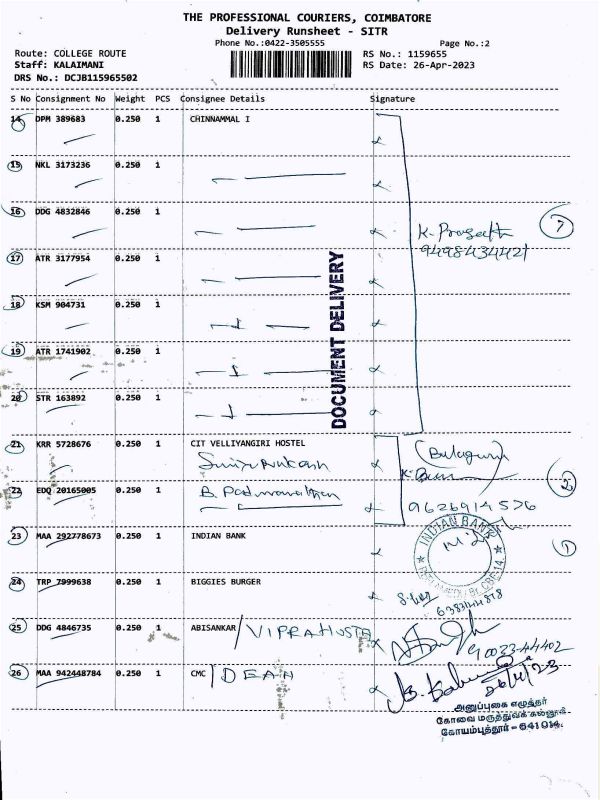 THE PROFESSIONAL COURIERS, COIMBATORE
Delivery Runsheet - SITR
Phone No.:0422-3505555 Page No.:2
Route: COLLEGE ROUTE RS No.: 1159655
Staff: KALAIMANI RS Date: 26-Apr-2023
DRS No.: DCJB115965502
S No Consignment No Weight PCS Consignee Details Signature
14 DPM 389683 0.250 1 CHINNAMMAL I
15 NKL 3173236 0.250 1
16 DDG 4832846 0.250 1
K. Prasath 7
9498434421
17 ATR 3177954 0.250 1
18 KSM 904731 0.250 1
19 ATR 1741902 0.250 1
20 STR 163892 0.250 1
DOCUMENT DELIVERY
21 KRR 5728676 0.250 1 CIT VELLIYANGIRI HOSTEL
(Balaguru)
22 EDQ 20165005 0.250 1 B. Padmanathan 2
9626914576
23 MAA 292778673 0.250 1 INDIAN BANK 1
INDIAN BANK
24 TRP 7999638 0.250 1 BIGGIES BURGER
6383144878
25 DDG 4846735 0.250 1 ABISANKAR / VIPRA HOSTE
90033-44402
26 MAA 942448784 0.250 1 CMC / DEAN
26/4/23
அனுப்புகை எழுத்தர்
கோவை மருத்துவக் கல்லூரி
கோயம்புத்தூர் - 641014.